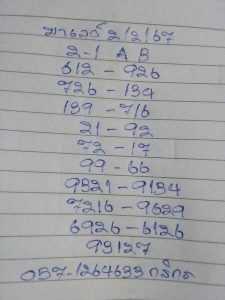 มาเลย์ 2/2/67
2-1 A B
612 - 926
726 - 134
139 - 716
21 - 92
72 - 17
99 - 66
9321 - 9134
7216 - 9629
6926 - 6126
93127
057-1264633